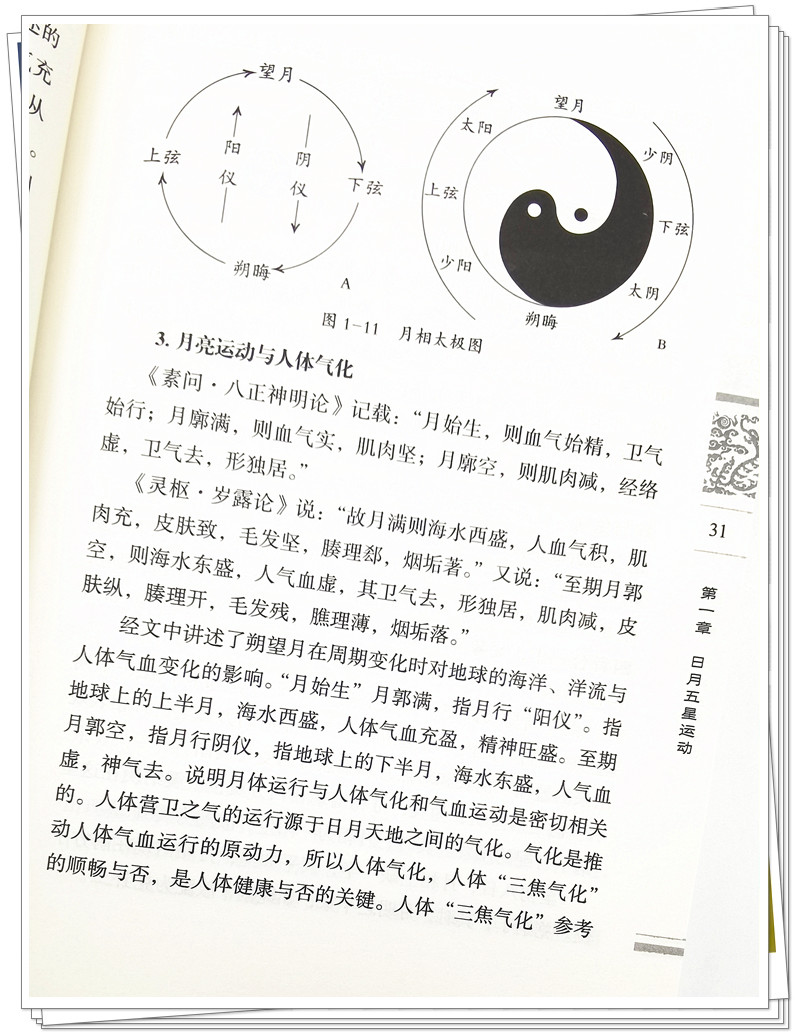 望月
上弦
阳仪
阴仪
下弦
朔晦
A
望月
太阳
少阴
上弦
下弦
少阳
太阴
朔晦
B
图 1-11 月相太极图
3. 月亮运动与人体气化
《素问·八正神明论》记载：“月始生，则血气始精，卫气
始行；月廓满，则血气实，肌肉坚；月廓空，则肌肉减，经络
虚，卫气去，形独居。”
《灵枢·岁露论》说：“故月满则海水西盛，人血气积，肌
肉充，皮肤致，毛发坚，腠理郄，烟垢著。”又说：“至期月郭
空，则海水东盛，人气血虚，其卫气去，形独居，肌肉减，皮
肤纵，腠理开，毛发残，膲理薄，烟垢落。”
经文中讲述了朔望月在周期变化时对地球的海洋、洋流与
人体气血变化的影响。“月始生”月郭满，指月行“阳仪”。指
地球上的上半月，海水西盛，人体气血充盈，精神旺盛。至期
月郭空，指月行阴仪，指地球上的下半月，海水东盛，人气血
虚，神气去。说明月体运行与人体气化和气血运动是密切相关
的。人体营卫之气的运行源于日月天地之间的气化。气化是推
动人体气血运行的原动力，所以人体气化，人体“三焦气化”
的顺畅与否，是人体健康与否的关键。人体“三焦气化”参考
31
第一章 日月五星运动
的
充
从
。